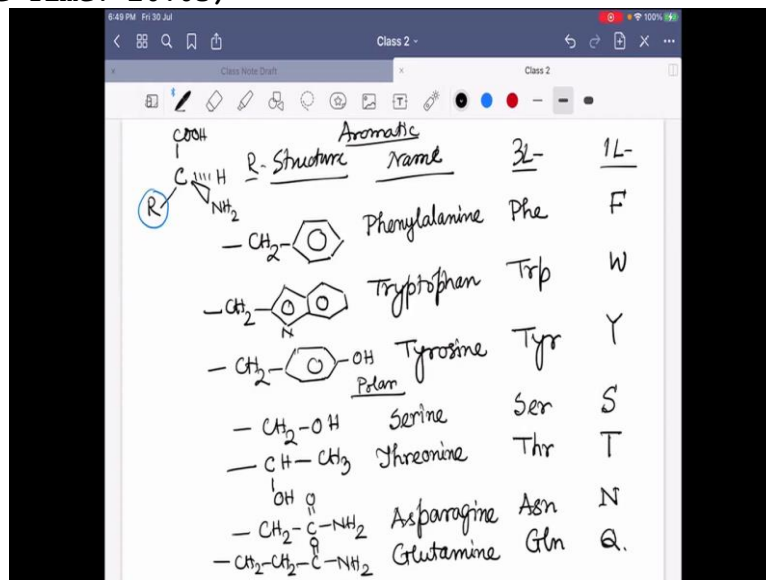 6:49 PM Fri 30 Jul
100%
Class 2
Class Note Draft
Class 2
T
Aromatic
COOH
R-Structure Name 3L- 1L-
C H
R NH2
-CH2- Phenylalanine Phe F
-CH2- N Tryptophan Trp W
-CH2- -OH Tyrosine Tyr Y
Polar
-CH2-OH Serine Ser S
-CH-CH3 Threonine Thr T
OH O
-CH2-C-NH2 Asparagine Asn N
O
-CH2-CH2-C-NH2 Glutamine Gln Q.